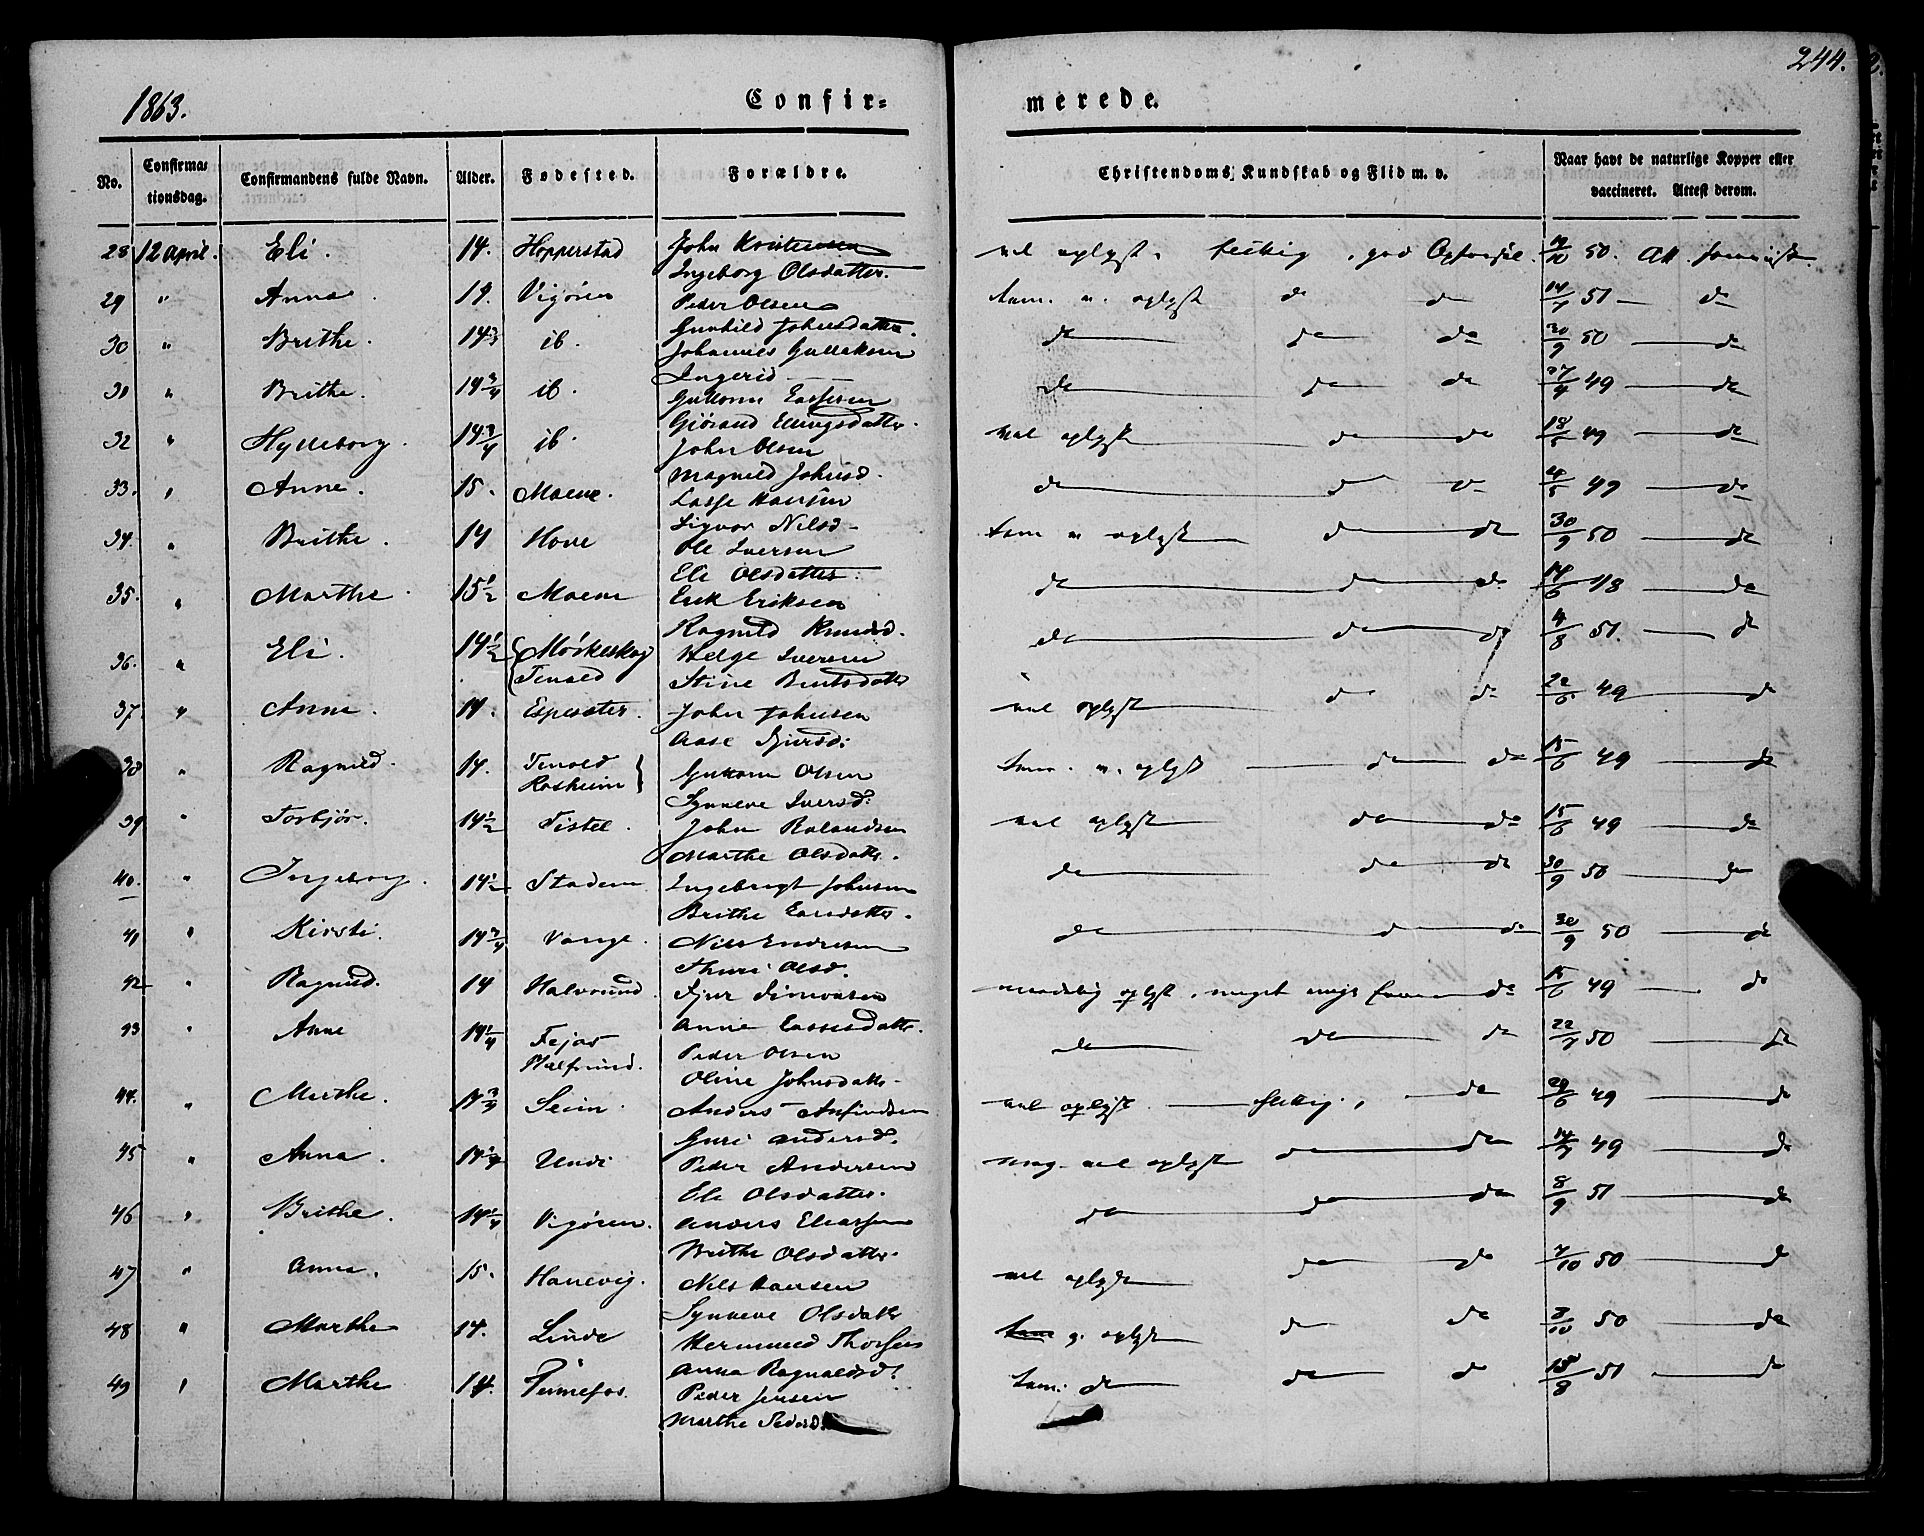 1863.
Confir=
merede.
244.
No.
Confirma=
tionsdag.
Confirmandens fulde Navn.
Alder.
Fødested.
Forældre.
Christendoms Kundskab og Flid m. v.
Naar havt de naturlige Kopper eller
vaccineret. Attest derom.
28 12 April. Eli. 14. Hopperstad John
Ingeborg Olsdatter.
vel oplyst. flittig, god Opførsel. 50. Att.
29 " Anna. 14 Vigøren Peder Olsen
Gunhild Johnsdatter.
tem. v. oplyst do do 14/7 51 — do
30 " Brithe. 14 3/4 ib. Johannes Gulleksen
Ingerid —
do do do 30/9 50 — do
31 " Brithe. 14 3/4 ib. Guttorm Lassesen
Gjørand Ellingsdatter.
do do do 27/4 49 — do
32 " Hylleborg. 14 3/4 ib. John Olsen
Magnild Johnsd.
vel oplyst do do 18/5 49 — do
33. " Anne. 15. Moene. Lasse Hansen
Sigvor Nilsd.
do do do 4/5 49 — do
34. " Brithe. 14 Hove Ole Iversen
Eli Olsdatter.
tem v oplyst do do 30/9 50 — do
35. " Marthe. 15 1/2 Moene Erik Eriksen
Ragnild Knudsd.
do do do 14/6 48 — do
36. " Eli. 14 1/2 Mørkeskog
Tenold
Helge Iversen
Stine Bentsdatter
do do do 4/8 51. — do
37. " Anne. 14. Espesæter. John Johnsen
Aase Sjursd:
vel oplyst do do 22/6 49 — do
38 " Ragnild. 14. Tenold
Rosheim
Guttorm Olsen
Synneve Iversd:
tem. v. oplyst do do 15/6 49 — do
39 " Torbjør. 14 1/2 Tistel. John Rolandsen
Marthe Olsdatr.
vel oplyst do do 15/6 49 — do
40. " Ingeborg. 14 1/2 Stadem Ingebrigt Johnsen
Brithe
do do do 30/9 50 — do
41 " Kirsti. 14 3/4 Vange. Nils Endresen
Thuri Olsd.
do do do 30/9 50 — do
42 " Ragnild. 14 Halvrund Sjur Simonsen
Anne Lassesdattr.
maadelig oplyst, meget do 15/6 49 — do
43 " Anne 14 1/4 Fejos
Halfrund.
Peder Olsen
Oline Johnsdattr.
do do do 22/7 50 do
44. " Marthe. 14 3/4 Seim. Anders Anfindsen
Guri Andersd.
vel oplyst. — flittig, — do 29/6 49 — do
45 " Anna. Undi Peder Andersen
Eli Olsdatter.
meg. vel oplyst do do 49 — do
46 " Brithe. 14 1/4 Vigøren. Anders Eliassen
Brithe Olsdatter.
do do do 8/9 51 — do
47 " Anna. 15. Hanevig. Nils Hansen
Synneve Olsdattr
vel oplyst do do 7/10 50 — do
48 " Marthe 14. Linde Hermund Thorsen
Anna Ragnaldsd:
tem g. oplyst do do 50 — do
49 " Marthe 14. Finnefos. Peder Jensen
Marthe Pedersd.
tem. do do do 15/8 51 — do